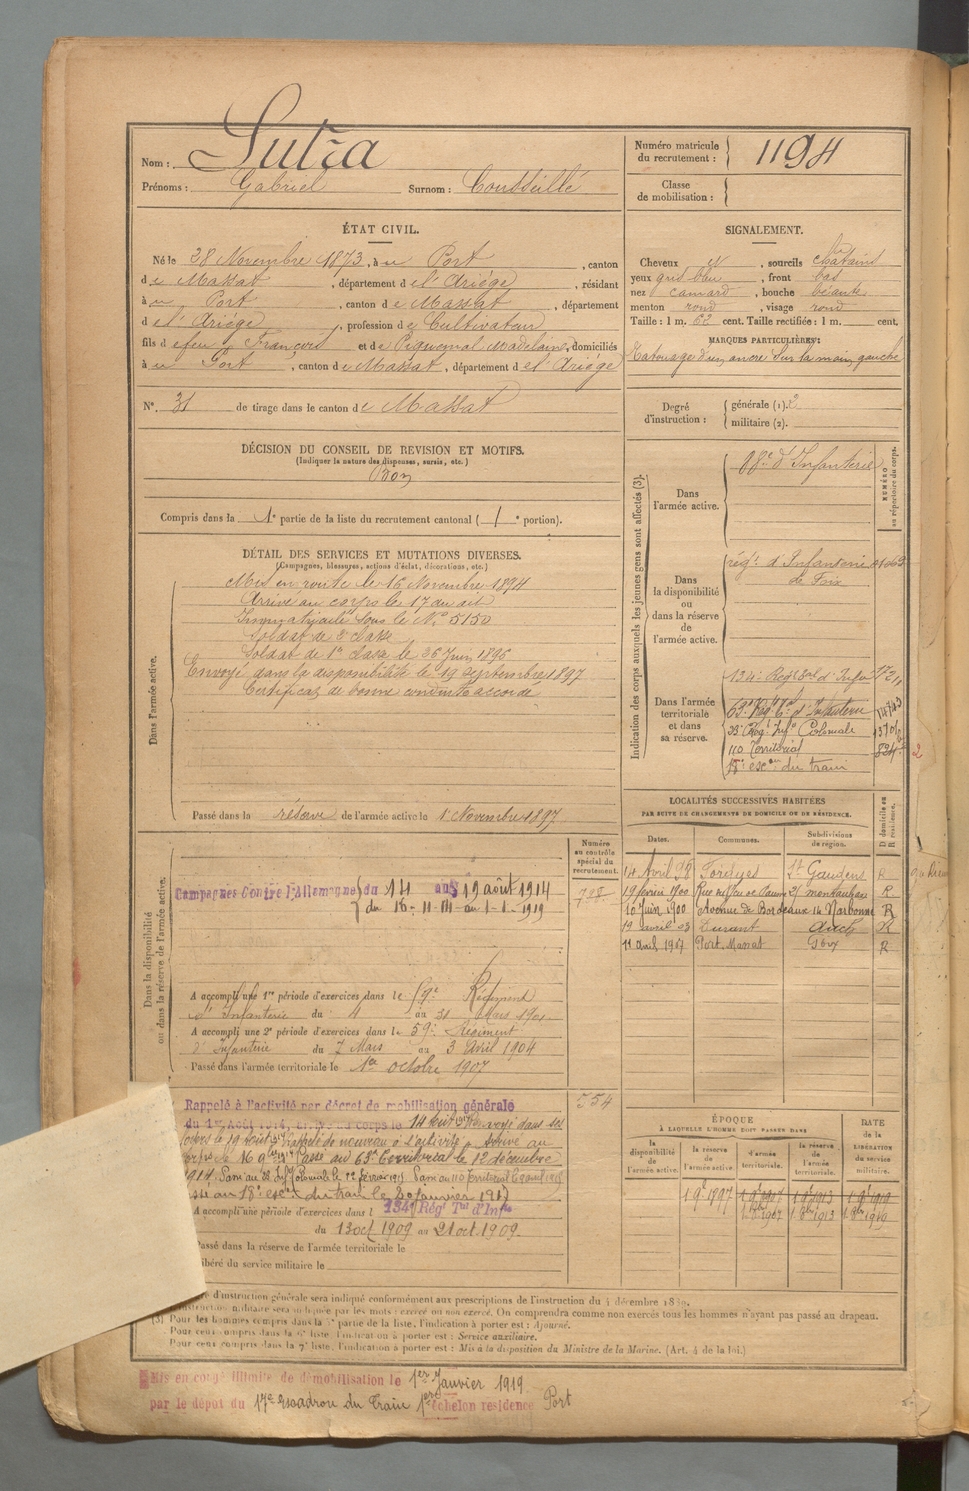 Nom : Sutra
Prénoms : Gabriel Surnom : Cousseillé
Numéro matricule du recrutement : 1194
Classe de mobilisation :
ÉTAT CIVIL.
Né le 28 Novembre 1873, à u Port, canton
d e Massat, département d e l'Ariége, résidant
à u Port, canton d e Massat, département
d e l'Ariége, profession d e Cultivateur
fils d e feu François et d e Piquemal Madelaine, domiciliés
à u Port, canton d e Massat, département d e l'Ariége
N° 31 de tirage dans le canton d e Massat
SIGNALEMENT.
Cheveux et, sourcils châtains
yeux gris bleu, front bas
nez camard, bouche béante
menton rond, visage rond
Taille : 1 m. 62 cent. Taille rectifiée : 1 m. cent.
MARQUES PARTICULIÈRES :
Tatouage d'un ancre sur la main gauche
Degré d'instruction : générale (1). 2
militaire (2).
DÉCISION DU CONSEIL DE REVISION ET MOTIFS.
(Indiquer la nature des dispenses, sursis, etc.)
Bon
Compris dans la 1e partie de la liste du recrutement cantonal ( 1 e portion).
DÉTAIL DES SERVICES ET MUTATIONS DIVERSES.
(Campagnes, blessures, actions d'éclat, décorations, etc.)
Dans l'armée active.
Mis en route le 16 Novembre 1894
Arrivé au corps le 17 du dit
Immatriculé sous le N° 5150
Soldat de 2e classe
Soldat de 1re classe le 26 Juin 1896
Envoyé dans la disponibilité le 19 septembre 1897
Certificat de bonne conduite accordé
Passé dans la réserve de l'armée active le 1er Novembre 1897
Indication des corps auxquels les jeunes gens sont affectés (3).
NUMÉRO au répertoire du corps.
Dans l'armée active.
88e d'Infanterie
Dans la disponibilité ou dans la réserve de l'armée active.
régt d'Infanterie
de Foix
Dans l'armée territoriale et dans sa réserve.
134e Régt Terl d'Infie
63e Régt Tal d'Infanterie
33e Régt Infie Coloniale
110 Territorial
18e escon du train
2
LOCALITÉS SUCCESSIVES HABITÉES
PAR SUITE DE CHANGEMENTS DE DOMICILE OU DE RÉSIDENCE.
Dates. Communes. Subdivisions de région. D domicile ou R résidence.
14 Avril 98 St Gaudens R
19 février 1900 Montauban R
10 Juin 1900 Avenue de Bordeaux 14 Narbonne R
19 avril 03 Durant Auch R
11 avril 1907 Port. Massat Foix R
Dans la disponibilité ou dans la réserve de l'armée active.
Numéro au contrôle spécial du recrutement.
728
Campagnes Contre l'Allemagne du 14 au 19 août 1914
du 16-11-14 au 1-1-1919
A accompli une 1re période d'exercices dans le 9e Régiment
d'Infanterie du 4 au 31 Mars 1901
A accompli une 2e période d'exercices dans le 59e Régiment
d'Infanterie du 7 Mars au 3 Avril 1904
Passé dans l'armée territoriale le 1er octobre 1907
554
Rappelé à l'activité par décret de mobilisation générale
du 1er Août 1914, arrivé au corps le 14 Août Renvoyé dans ses
foyers le 19 Août Rappelé de nouveau à l'activité, arrivé au
corps le 16 9bre Passé au 63e Territorial le 12 décembre
1914. Passé au 33 Infie Coloniale le 12 février 1915 Passé au 110 Territorial
Passé au 18e escon du train le 20 Janvier 1917
A accompli une période d'exercices dans l 134e Régt Tal d'Infie
du 13 oct 1909 au 21 oct 1909.
Passé dans la réserve de l'armée territoriale le
libéré du service militaire le
ÉPOQUE
À LAQUELLE L'HOMME DOIT PASSER DANS
la disponibilité de l'armée active. la réserve de l'armée active. l'armée territoriale. la réserve de l'armée territoriale. DATE de la LIBÉRATION du service militaire.
1 9bre 1897 1 9bre 1907 1 9bre 1913 1 9bre 1919
1 8bre 1907 1 8bre 1913 1 8bre 1919
d'instruction générale sera indiqué conformément aux prescriptions de l'instruction du 4 décembre 1889.
instruction militaire sera indiquée par les mots : exercé ou non exercé. On comprendra comme non exercés tous les hommes n'ayant pas passé au drapeau.
(3) Pour les hommes compris dans la 5e partie de la liste, l'indication à porter est : Ajourné.
Pour ceux compris dans la 6e liste, l'indication à porter est : Service auxiliaire.
Pour ceux compris dans la 7e liste, l'indication à porter est : Mis à la disposition du Ministre de la Marine. (Art. 4 de la loi.)
Mis en congé illimité de démobilisation le 1er Janvier 1919
par le dépôt du 17e escadron du Train 1er échelon résidence Port